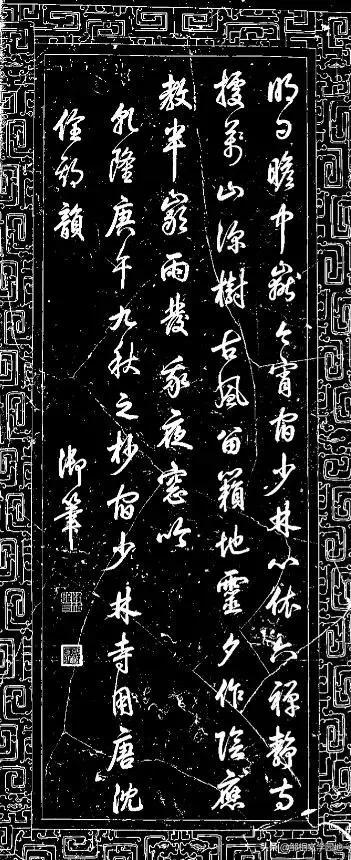 明日瞻中嶽今宵宿少林心依六禪靜寺
據萬山深樹古風留籟地靈夕作陰應
教半巖雨發我夜窓吟
乾隆庚午九秋之杪宿少林寺用唐沈
佺期韻 御筆